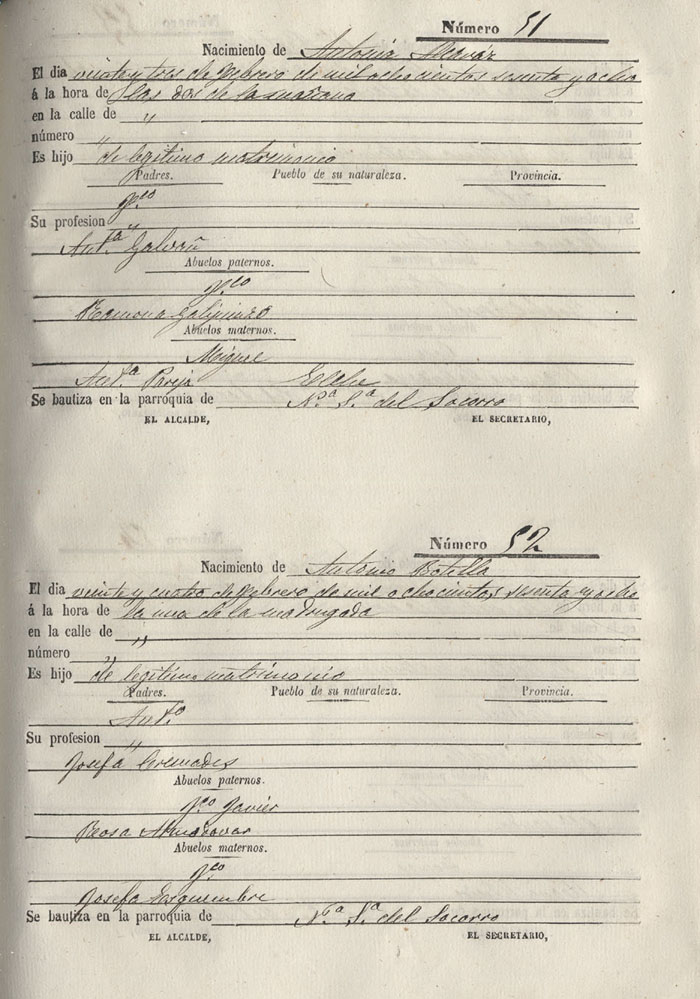 Número 51
Nacimiento de Antonia
El dia veinte y tres de Febrero de mil ochocientos sesenta y ocho
á la hora de las dos de la mañana
en la calle de "
número "
Es hijo de legitimo matrimonio
Padres. Pueblo de su naturaleza. Provincia.
Fco
Su profesion "
Ant.a
Abuelos paternos.
Fco
Ramona
Abuelos maternos.
Miguel
Ant.a Elche
Se bautiza en la parroquia de N.a S.a del Socorro
EL ALCALDE, EL SECRETARIO,
Número 52
Nacimiento de Antonio Botella
El dia veinte y cuatro de Febrero de mil ochocientos sesenta y ocho
á la hora de la una de la madrugada
en la calle de "
número "
Es hijo de legitimo matrimonio
Padres. Pueblo de su naturaleza. Provincia.
Ant.o
Su profesion "
Josefa Cremades
Abuelos paternos.
Fco Javier
Rosa
Abuelos maternos.
Fco
Josefa Esquembre
Se bautiza en la parroquia de N.a S.a del Socorro
EL ALCALDE, EL SECRETARIO,